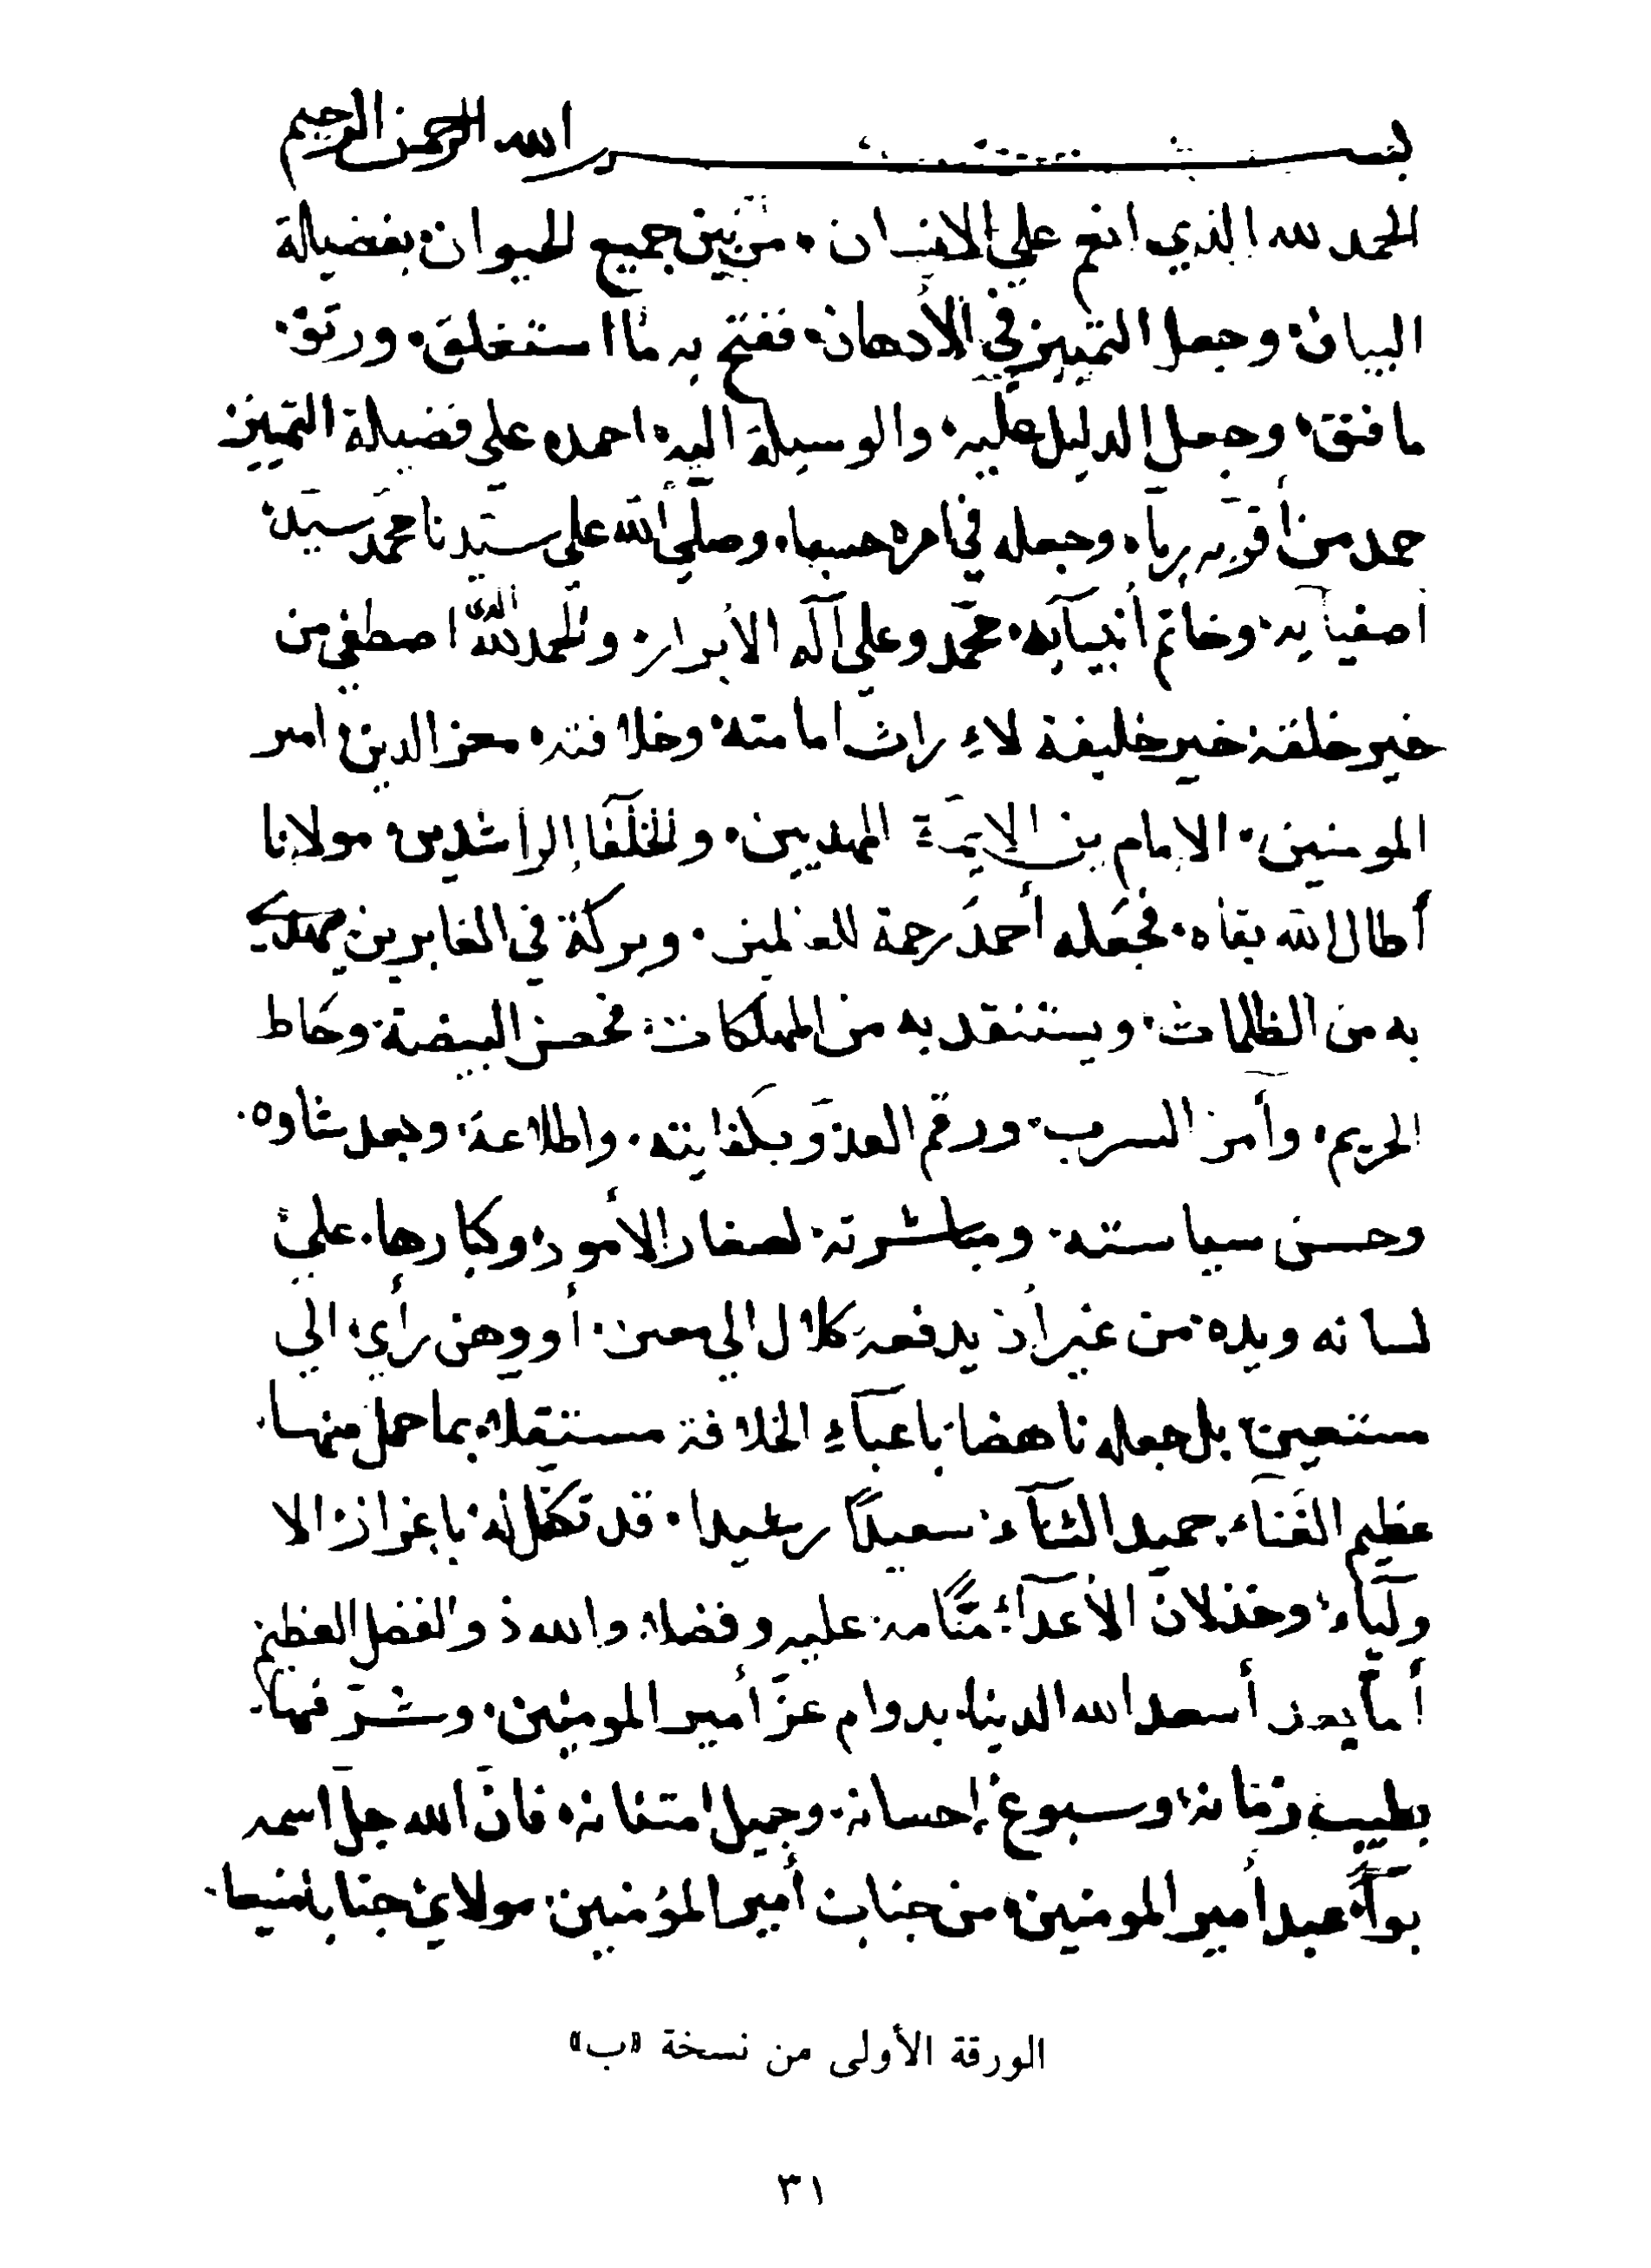 بسم الله الرحمن الرحيم
الحمد لله الذي انعم علي الانسان، من بين جميع الحيوان، بفضيلة
البيان، وجعل التمييز في الأدهان، ففتح به ما استغلق، ورتق،
ما فتق، وجعل الدليل عليه، والوسيلة اليه، احمده علي فضيلة التمييز
حمد من أقر به ربا، وجعله في امره حسبا، وصلي الله على سيدنا محمد سيد،
اصفيآيه، وخاتم أنبيآيه، محمد وعلي آله الأبرار، والحمد لله الذى اصطفي من
خير خلقه خير خليفة لاءراث امامته، وخلافته، معز الدين، امير
المومنين، الامام بن الايمة المهديين، والخلفآ الراشدين، مولانا
أطال الله بقاه، فجعله أحمد رحمة للعلمين، وبركة في الغابرين يهتدي
به من الظلمات، ويستنقد به من المهلكات، فحصن البيضة، وحاط
الحريم، وأمن السرب، ورقم العدو بكفايته، واطلاعه، وبعد شاوه،
وحسن سياسته، ومباشرته، لصغار الأمور، وكبارها، علي
لسانه ويده، من غير أن يدفعه كلال الي معين، أو وهن رأي، الي
مستعين، بل جعله ناهضا، باعبآء الخلافة مستقلا، بما حمل منها،
عظيم الغناء، حميد الثنآء، سعيدًا رشيدا، قد تكفل له، باعزاز الا
وليآء، وخذلان الأعدآء، منًّا منه عليه وفضلا، والله ذو الفضل العظيم
أما بعد أسعد الله الدنيا، بدوام عز أمير المومنين، وشرفها،
بطيب زمانه، وسبوغ إحسانه، وجميل امتنانه، فان الله جل اسمه
بوأ، عبد أمير المومنين، من جناب أمير المؤمنين، مولاي، جنابا منيعا،
الورقة الأولى من نسخة «ب»
٣١